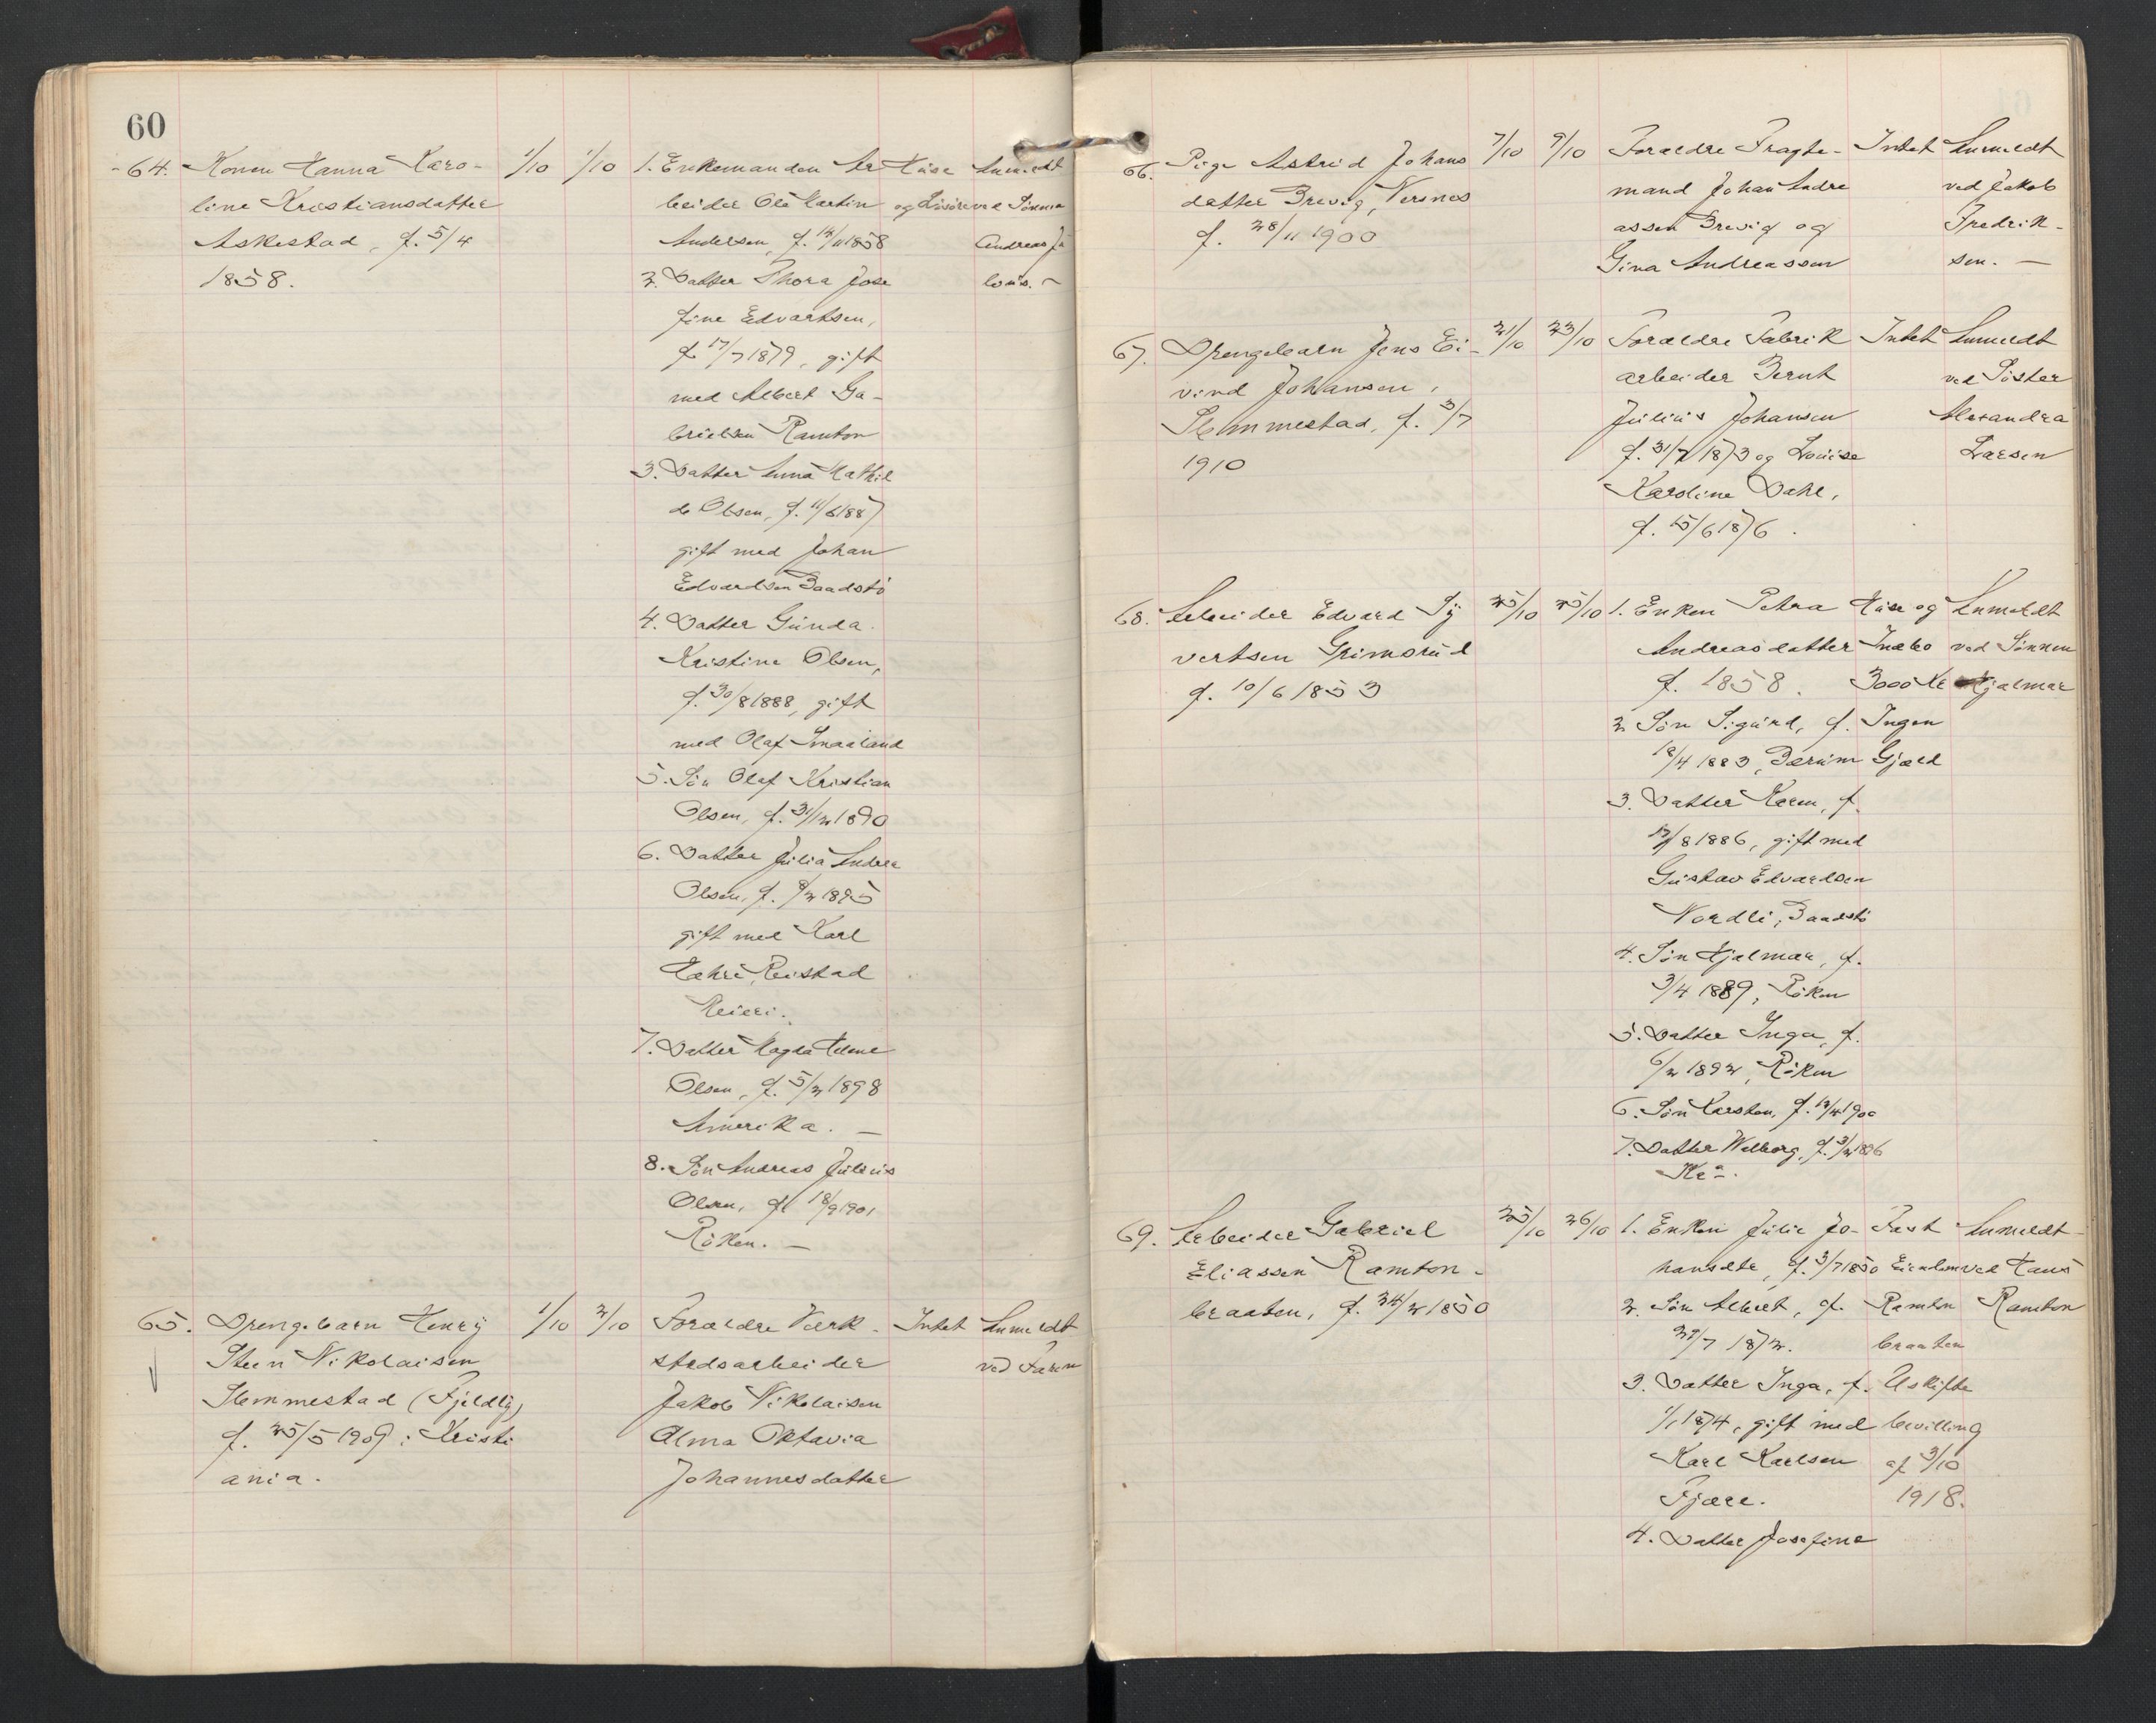 60
64. Konen Hanna Karo-
line Kristiansdatter
Askestad, f. 5/4
1858.
1/10
1/10
1. Enkemanden Ar
beider Ole Martin
Andersen, f. 14/11 1858
2. Datter Thora Jose
fine Edvartsen,
f. 17/7 1879, gift
med Albert Ga-
brielsen Ramton
3. Datter Anna Mathil
de Olsen, f. 11/6 1887
gift med Johan
Edvardsen Baadstö
4. Datter Gunda
Kristine Olsen,
f. 30/8 1888, gift
med Olaf Smaaland
5. Sön Olaf Kristian
Olsen, f. 31/12 1890
6. Datter Julia Andrea
Olsen, f. 9/2 1895
gift med Karl
Reistad
Meieri.
7. Datter Magda Helene
Olsen, f. 5/2 1898
Amerika. —
8. Sön Andreas Julius
Olsen, f. 18/9 1901
Röken. —
Huse
og Lösöre
Anmeldt
ved Sönnen
Andreas Ju
lius. —
65. Drengebarn Henry
Steen Nikolaisen
Slemmestad (Fjeldly)
f. 25/5 1909 i Kristi
ania.
1/10
2/10
Foraeldre Værk-
stedsarbeider
Jakob Nikolaisen
Alma Oktavia
Johannesdatter
Intet
Anmeldt
ved Faren
66. Pige Astrid Johans
datter Brevig, Nersnes
f. 28/11 1900
7/10
9/10
Foraeldre Fragte-
mand Johan Andre
assen Brevig og
Gina Andreassen
Intet
Anmeldt
ved Jakob
Fredrik-
sen. —
67. Drengebarn Jens Ei-
vind Johansen,
Slemmestad, f. 3/7
1910
21/10
23/10
Foraeldre Fabrik
arbeider Bernt
Julius Johansen
f. 31/7 1873 og Louise
Karoline Dahl,
f. 15/6 1876.
Intet
Anmeldt
ved Söster
Alexandra
Larsen
68. Arbeider Edvard Sy
vertsen Grimsrud
f. 10/6 1853
25/10
25/10
1. Enken Petra
Andreasdatter
f. 1858.
2. Sön Sigurd, f.
18/4 1883, Bærum
3. Datter Karen, f.
17/8 1886, gift med
Gustav Edvardsen
Nordli, Baadstö
4. Sön Hjalmar, f.
3/4 1889, Röken
5. Datter Inga, f.
6/2 1892, Röken
6. Sön Karsten, f. 12/4 1900
7. Datter Walborg, f. 3/2 1896
Kra.
Huse og
Indbo
3000 Kr
Ingen
Gjæld
Anmeldt
ved Sönnen
Hjalmar
69. Arbeider Gabriel
Eliassen Ramton-
braaten, f. 24/2 1850
25/10
26/10
1. Enken Julie Jo-
hansdtr, f. 3/7 1850
2. Sön Albert, f.
29/7 1872.
3. Datter Inga, f.
1/1 1874, gift med
Karl Karlsen
Fjære.
4. Datter Josefine
Fast
Eiendom
Ramton
braaten
Uskifte
bevilling
af 3/10
1918.
Anmeldt
ved Hans
Ramton